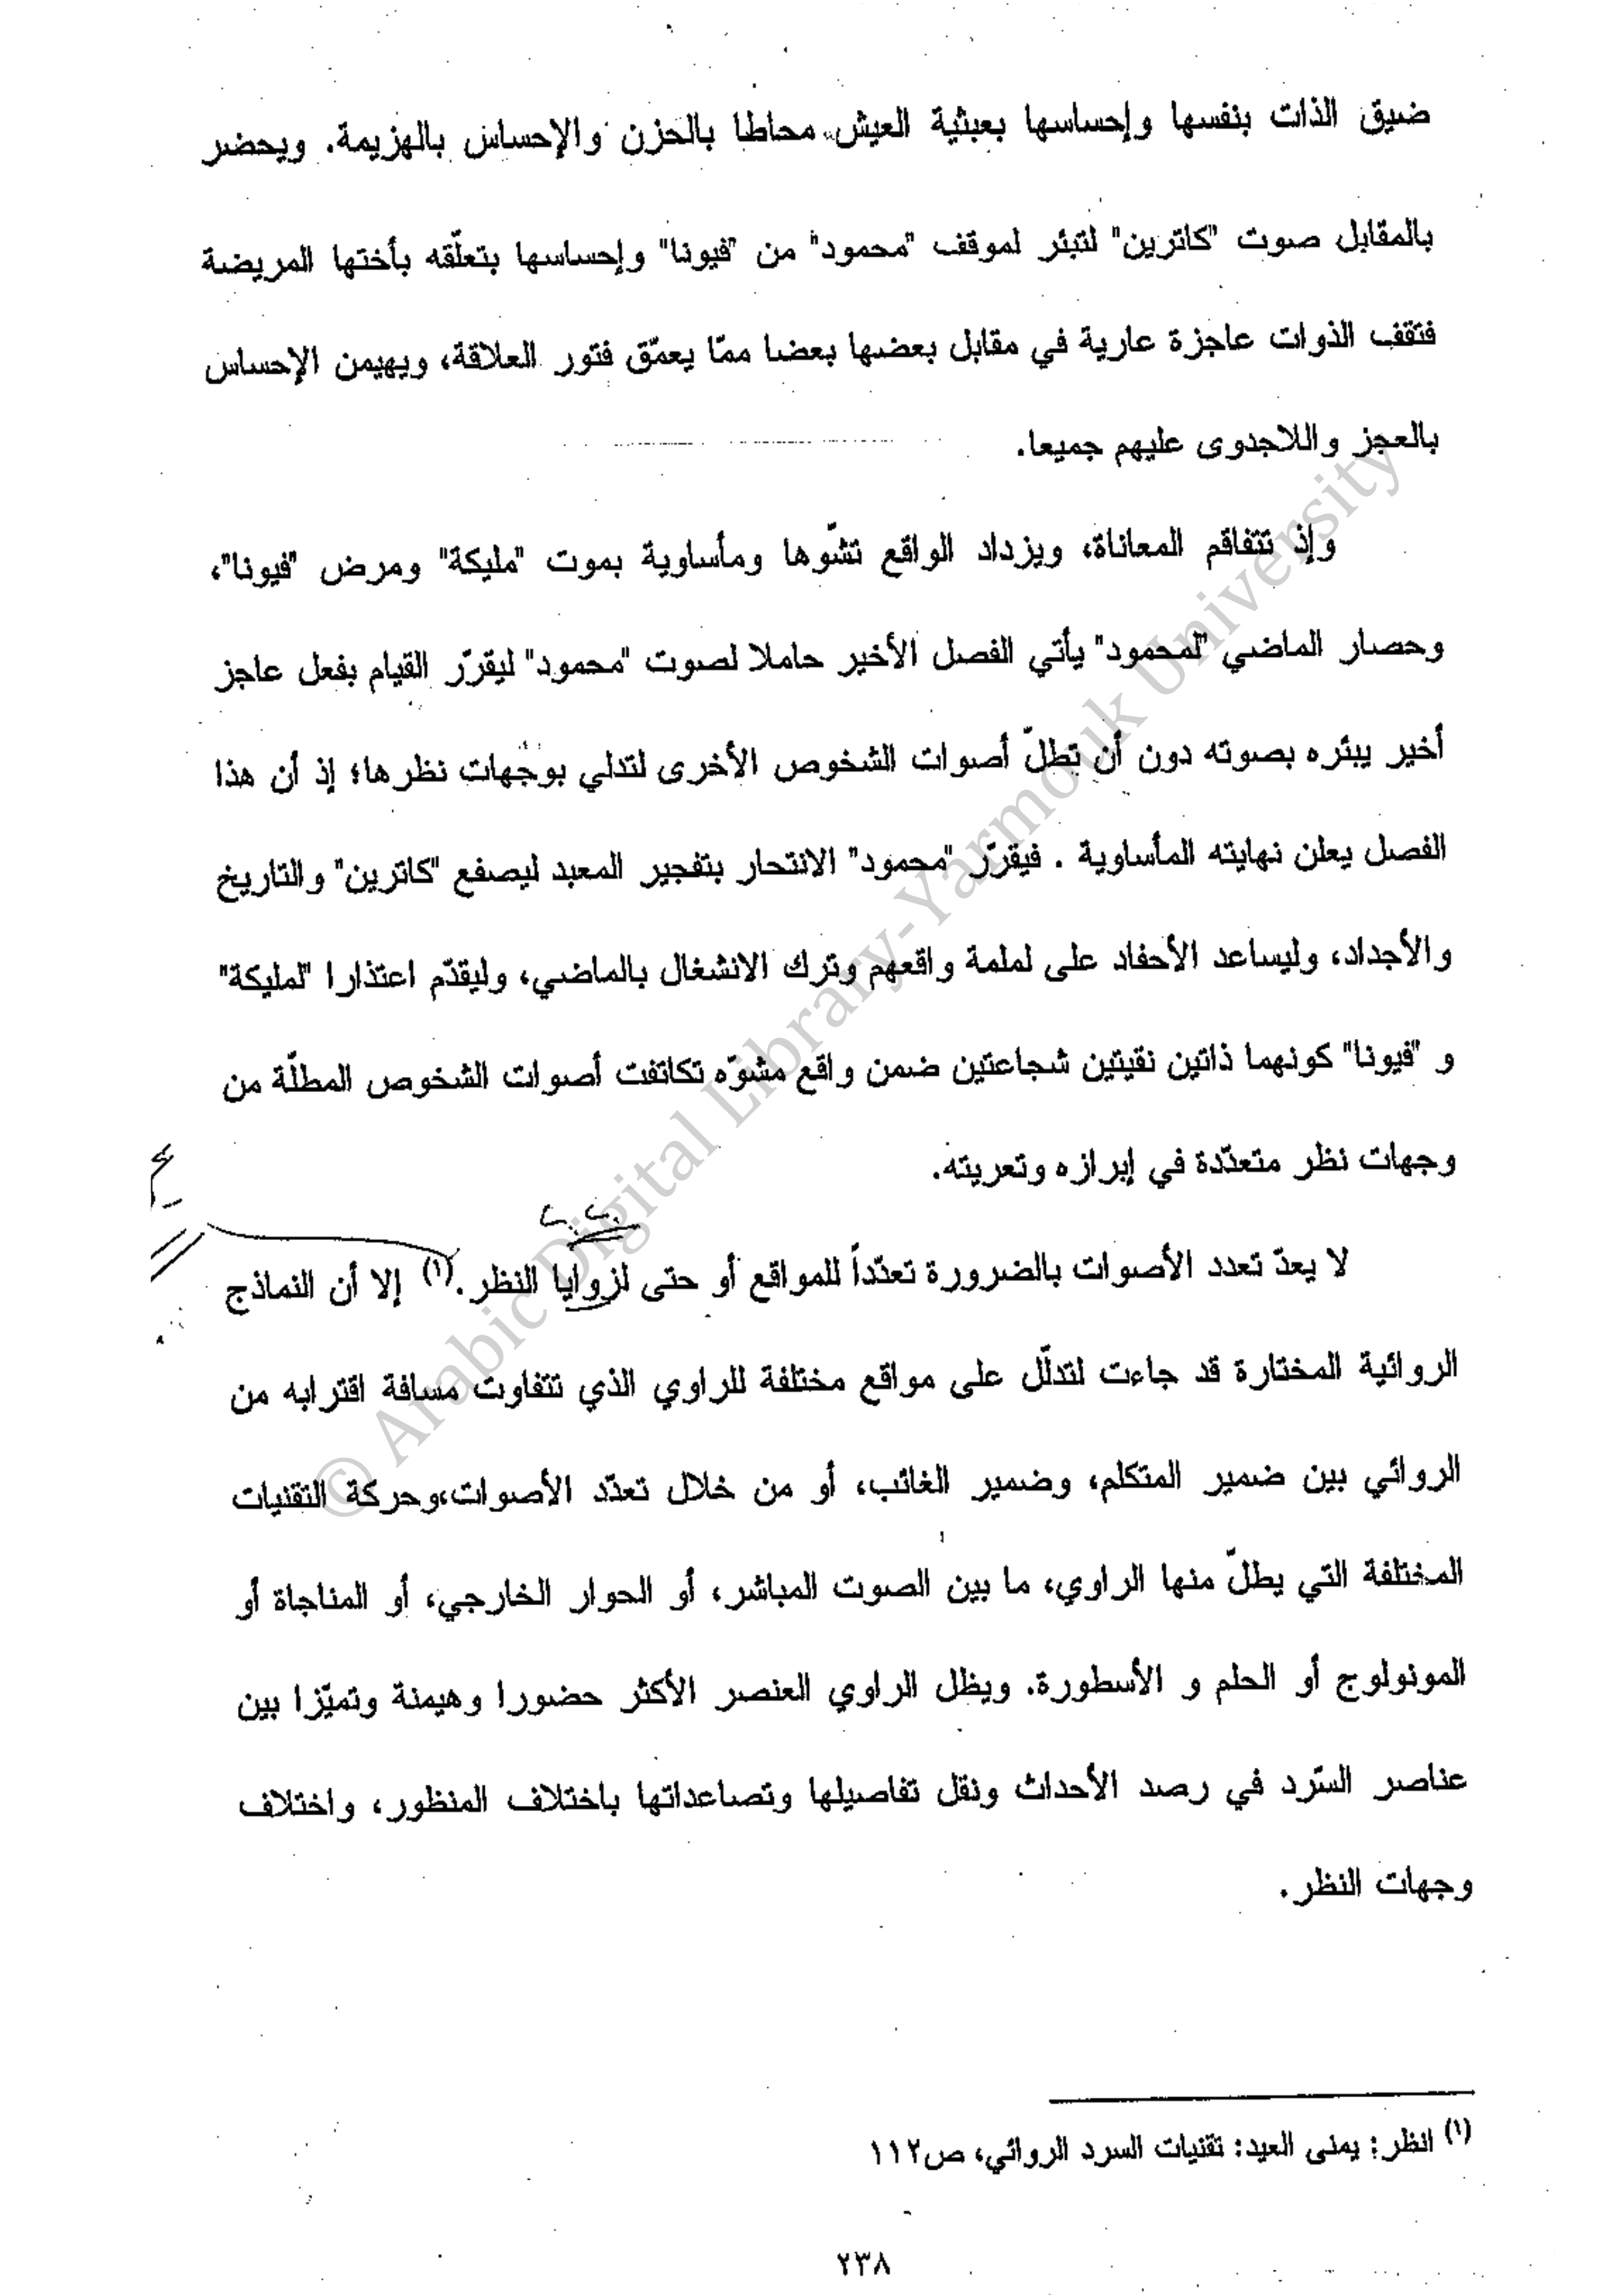 ضيق الذات بنفسها وإحساسها بعبثية العيش محاطا بالحزن والإحساس بالهزيمة. ويحضر
بالمقابل صوت "كاترين" لتبئر لموقف "محمود" من "فيونا" وإحساسها بتعلّقه بأختها المريضة
فتقف الذوات عاجزة عارية في مقابل بعضها بعضا ممّا يعمّق فتور العلاقة، ويهيمن الإحساس
بالعجز واللاجدوى عليهم جميعا.
وإذ تتفاقم المعاناة، ويزداد الواقع تشّوها ومأساوية بموت "مليكة" ومرض "فيونا"،
وحصار الماضي "لمحمود" يأتي الفصل الأخير حاملا لصوت "محمود" ليقرّر القيام بفعل عاجز
أخير يبئره بصوته دون أن تطلّ أصوات الشخوص الأخرى لتدلي بوجهات نظرها؛ إذ أن هذا
الفصل يعلن نهايته المأساوية . فيقرّر "محمود" الانتحار بتفجير المعبد ليصفع "كاترين" والتاريخ
والأجداد، وليساعد الأحفاد على لملمة واقعهم وترك الانشغال بالماضي، وليقدّم اعتذارا "لمليكة"
و "فيونا" كونهما ذاتين نقيتين شجاعتين ضمن واقع مشوّه تكاتفت أصوات الشخوص المطلّة من
وجهات نظر متعدّدة في إبرازه وتعريته.
لا يعدّ تعدد الأصوات بالضرورة تعدّداً للمواقع أو حتى لزوايا النظر.(١) إلا أن النماذج
الروائية المختارة قد جاءت لتدلّل على مواقع مختلفة للراوي الذي تتفاوت مسافة اقترابه من
الروائي بين ضمير المتكلم، وضمير الغائب، أو من خلال تعدّد الأصوات،وحركة التقنيات
المختلفة التي يطلّ منها الراوي، ما بين الصوت المباشر، أو الحوار الخارجي، أو المناجاة أو
المونولوج أو الحلم و الأسطورة. ويظل الراوي العنصر الأكثر حضورا وهيمنة وتميّزا بين
عناصر السّرد في رصد الأحداث ونقل تفاصيلها وتصاعداتها باختلاف المنظور، واختلاف
وجهات النظر.
(١) انظر: يمنى العيد: تقنيات السرد الروائي، ص١١٢
٢٣٨
© Arabic Digital Library-Yarmouk University